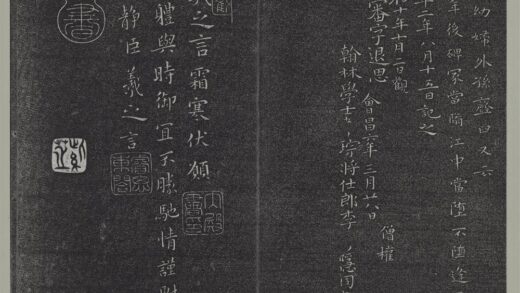 幼婦外孫齏臼又云
年後碑冢當墮江中當墮不墮逢
二年八月十五日記之
年十月二日觀
審字退思 會昌年三月廿八日
僧權
翰林學士 將仕郎李
之言霜寒伏願
體與時御宜不勝馳情謹附
静臣羲之言
書